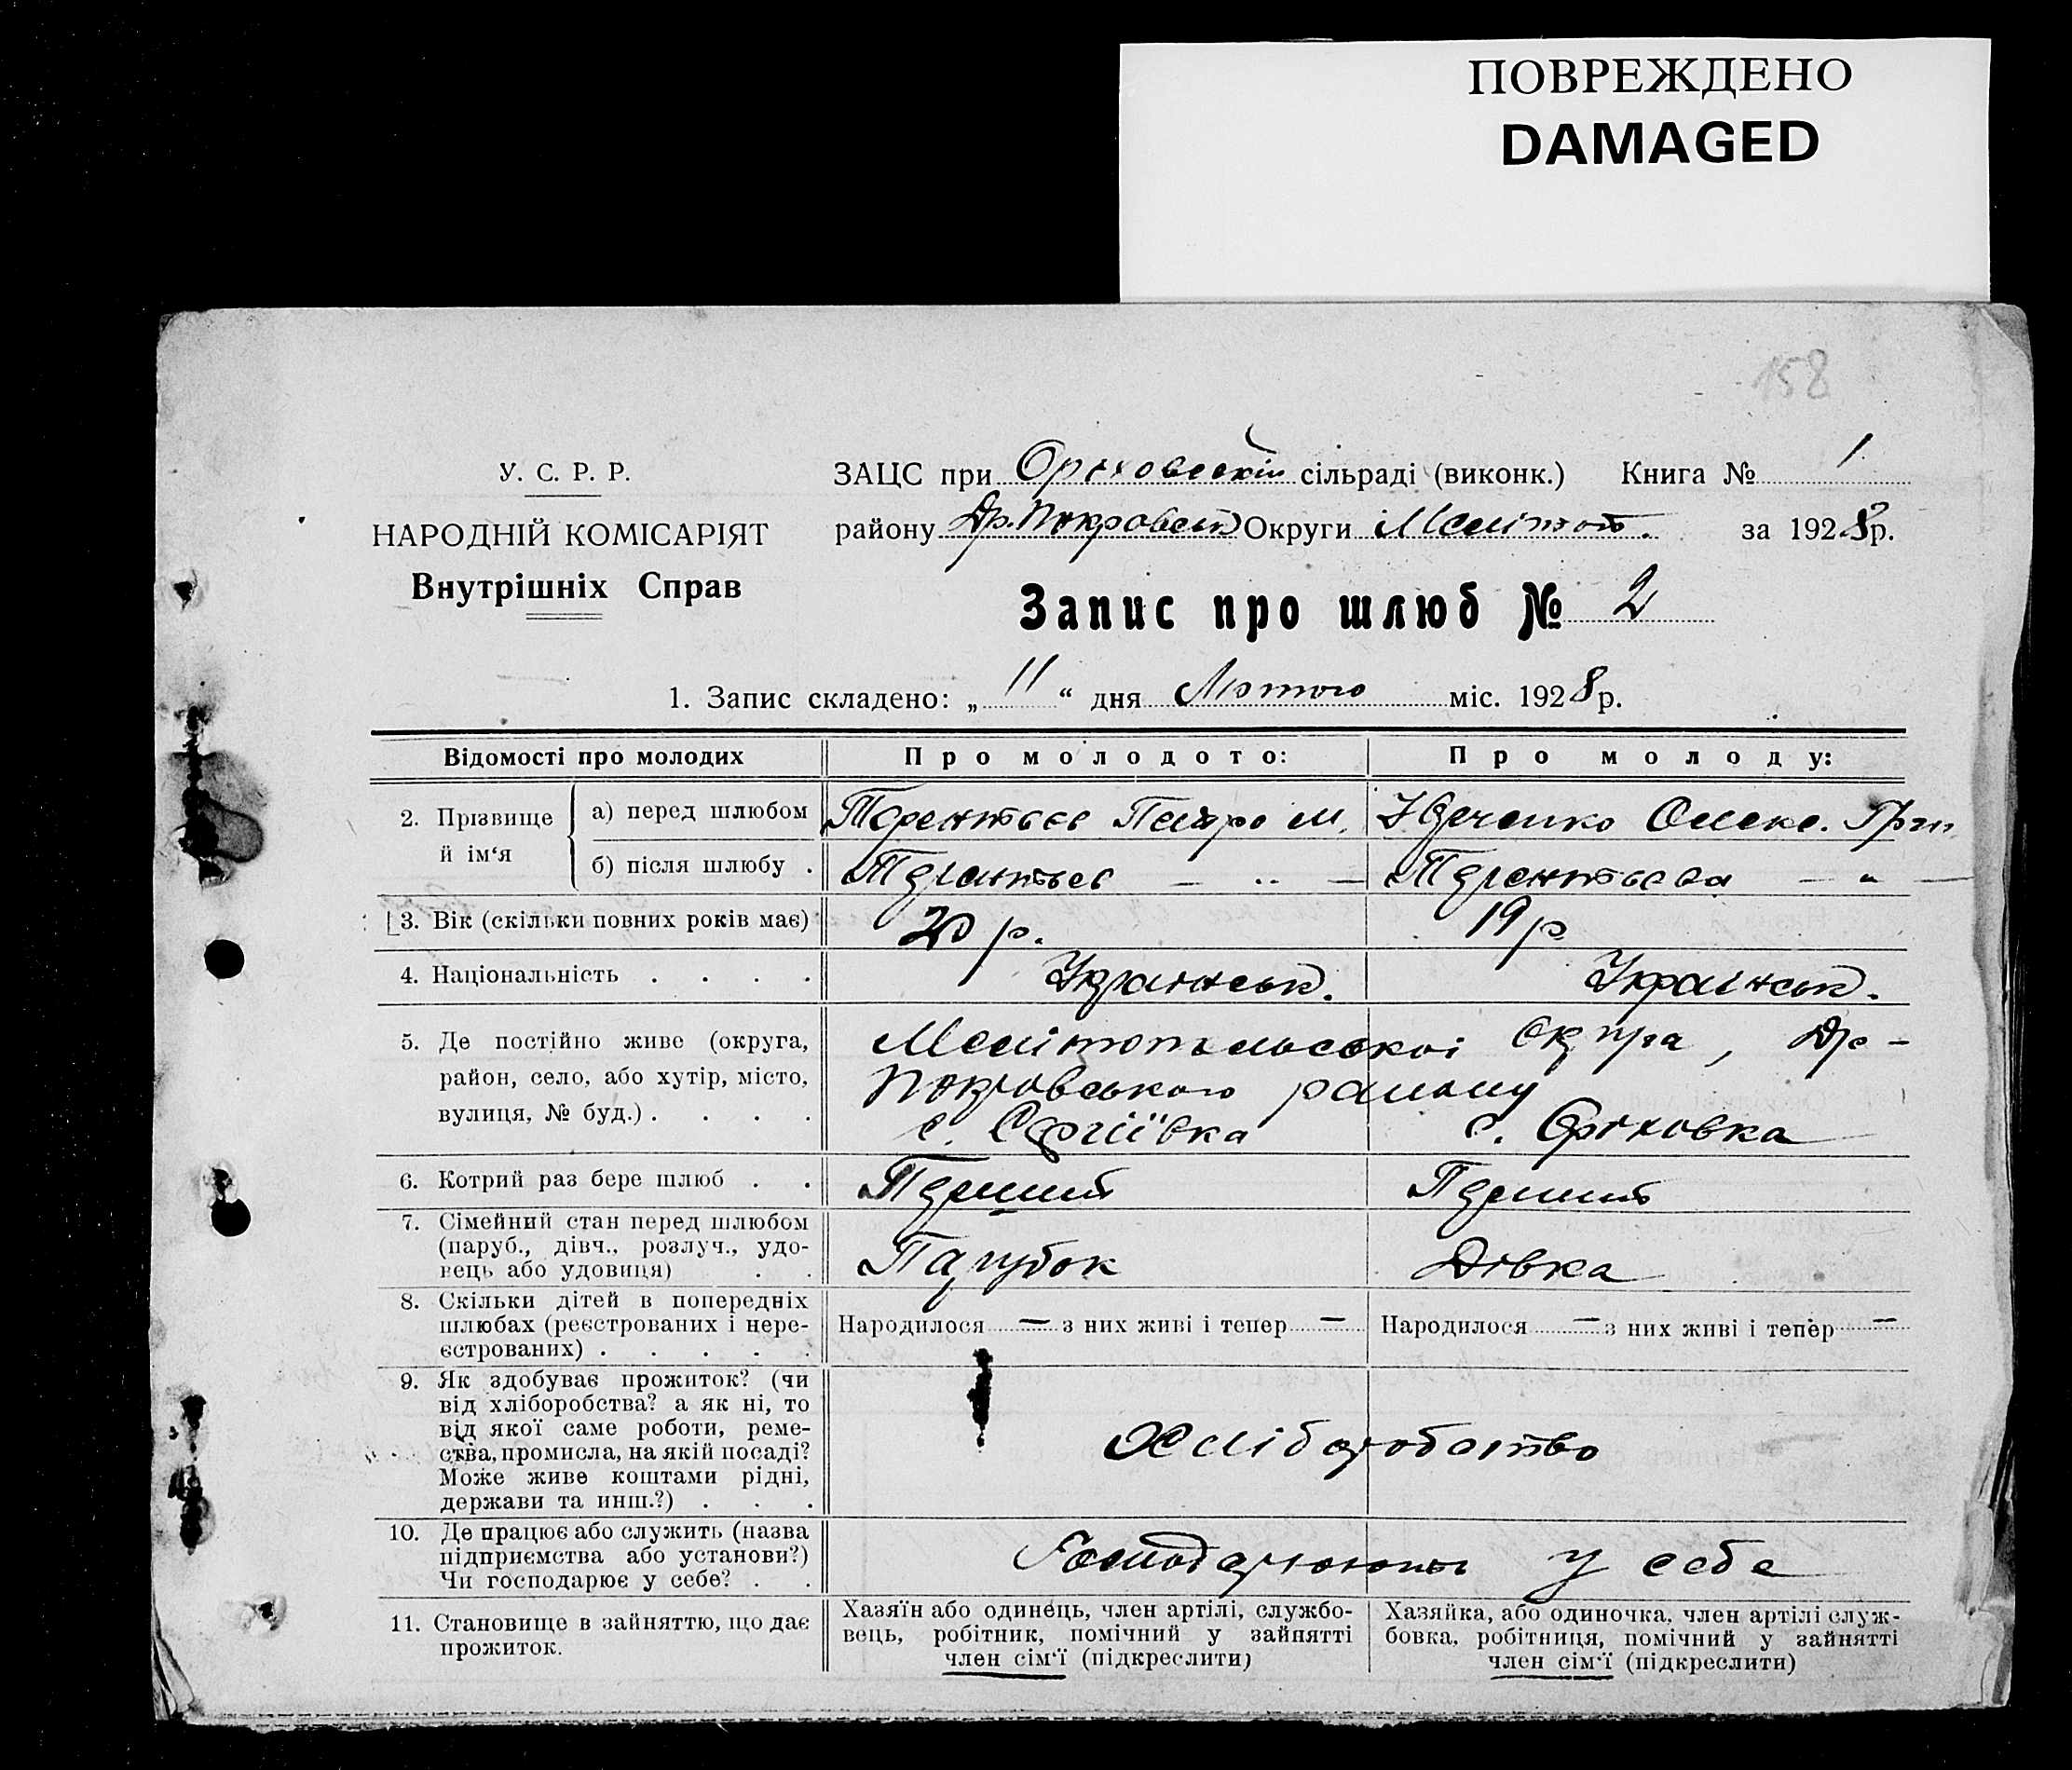 ПОВРЕЖДЕНО
DAMAGED
158
У. С. Р. Р.
НАРОДНІЙ КОМІСАРІЯТ
Внутрішніх Справ
ЗАЦС при Оріховській сільраді (виконк.) Книга № 1
району Др. Покровськ Округи Меліт. за 1928 р.
Запис про шлюб № 2
1. Запис складено: „ 11 “ дня Лютого міс. 1928 р.
Відомості про молодих
Про молодого:
Про молоду:
2. Прізвище й ім‘я
а) перед шлюбом
Терентьєв Петро М.
Ювченко Олекс. Григ.
б) після шлюбу .
Терентьєв — „ —
Терентьєва — „ —
3. Вік (скільки повних років має)
20 р.
19 р
4. Національність . . . .
Українськ.
Українськ.
5. Де постійно живе (округа,
район, село, або хутір, місто,
вулиця, № буд.) . . . .
Мелітопільської окр, Др-
Покровського району
с. Сергіївка
с. Оріховка
6. Котрий раз бере шлюб . .
Перший
Перший
7. Сімейний стан перед шлюбом
(паруб., дівч., розлуч., удо-
вець або удовиця) . .
Парубок
Дівка
8. Скільки дітей в попередніх
шлюбах (реєстрованих і нере-
єстрованих) . . . . .
Народилося — з них живі і тепер —
Народилося — з них живі і тепер —
9. Як здобуває прожиток? (чи
від хліборобства? а як ні, то
від якої саме роботи, реме-
ства, промисла, на якій посаді?
Може живе коштами рідні,
держави та инш.?) . . .
Хліборобство
10. Де працює або служить (назва
підприємства або установи?)
Чи господарює у себе? . .
Господарюють у себе
11. Становище в зайняттю, що дає
прожиток.
Хазяїн або одинець, член артілі, службо-
вець, робітник, помічний у зайнятті
член сім‘ї (підкреслити)
Хазяйка, або одиночка, член артілі служ-
бовка, робітниця, помічний у зайнятті
член сім‘ї (підкреслити)